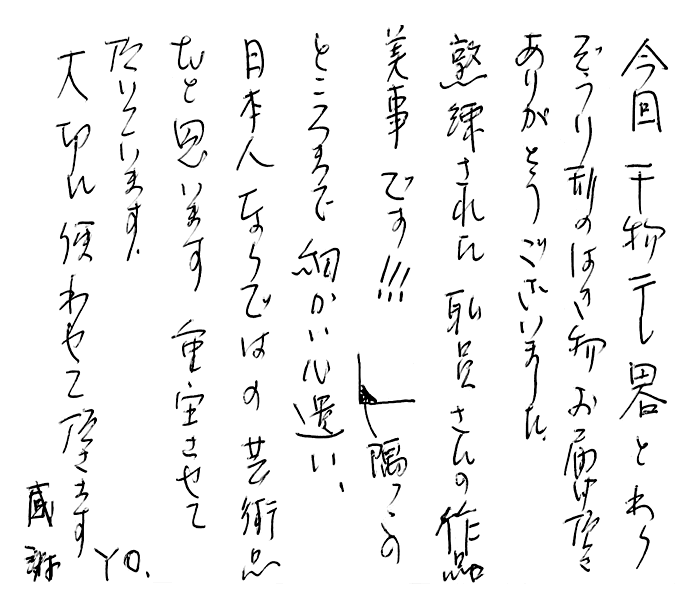 今回干物干し器とわら
ぞうり型のはき物お届け頂き
ありがとうございました。
熟練された職員さんの作品
美事です!!! 隅っこの
ところまで細かい心遣い、
日本人ならではの芸術品
だと思います 重宝させて
頂いています。
大切に使わせて頂きます
感謝
Y.O.